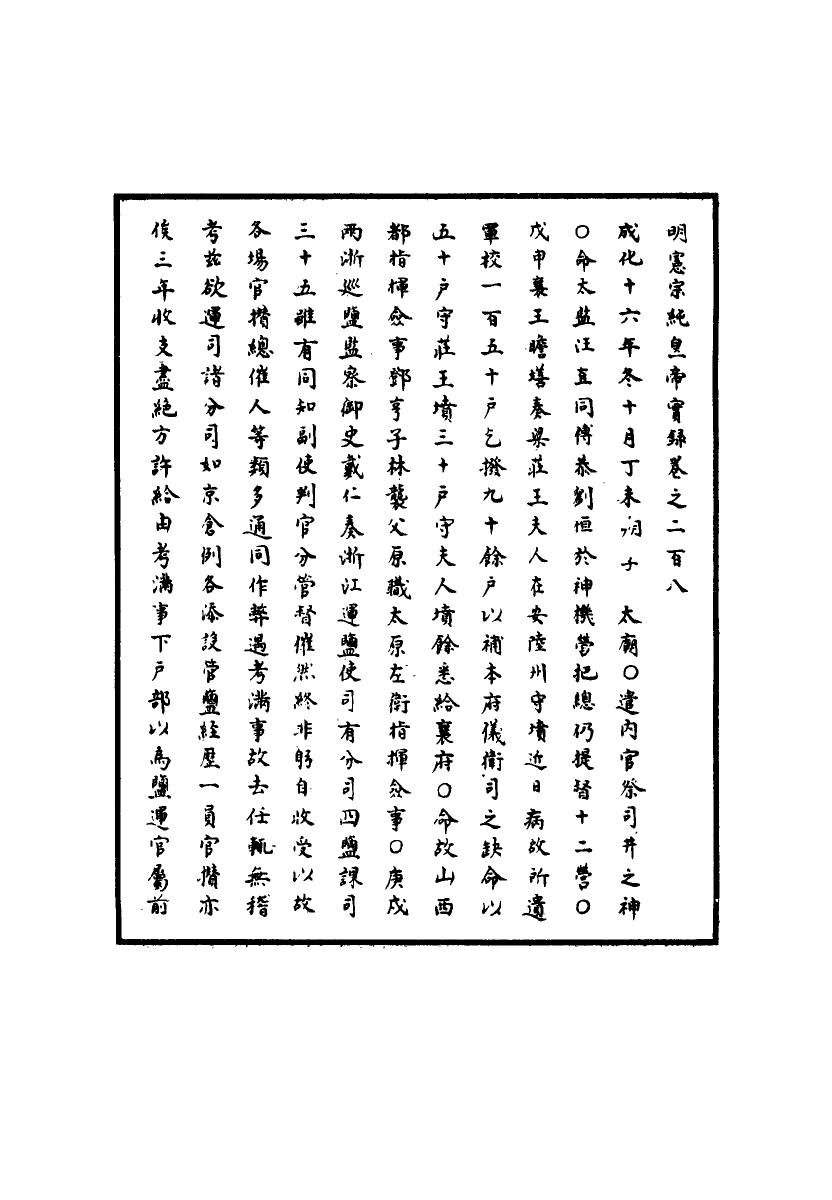 明憲宗純皇帝實錄卷之二百八
成化十六年冬十月丁未朔 于 太廟○遣內官祭司井之神
○命太監汪直同傅恭劉恒於神機營把總仍提督十二營○
戊申襄王瞻墡奏梁莊王夫人在安陸州守墳近日病故所遺
軍校一百五十戶乞撥九十餘戶以補本府儀衛司之缺命以
五十戶守莊王墳三十戶守夫人墳餘悉給襄府○命故山西
都指揮僉事鄧亨子林襲父原職太原左衛指揮僉事○庚戌
兩浙巡鹽監察御史戴仁奏浙江運鹽使司有分司四鹽課司
三十五雖有同知副使判官分管督催然終非躬自收受以故
各場官攢總催人等類多通同作弊遇考滿事故去任輒無稽
考茲欲運司諸分司如京倉例各添設管鹽經歷一員官攢亦
俟三年收支盡絕方許給由考滿事下戶部以為鹽運官屬前